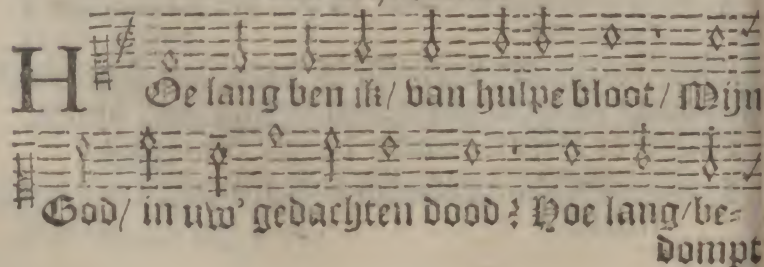 HOe lang ben ik/ van hulpe bloot/ Mijn
God/ in uw' gedachten dood? Hoe lang/be-
dompt